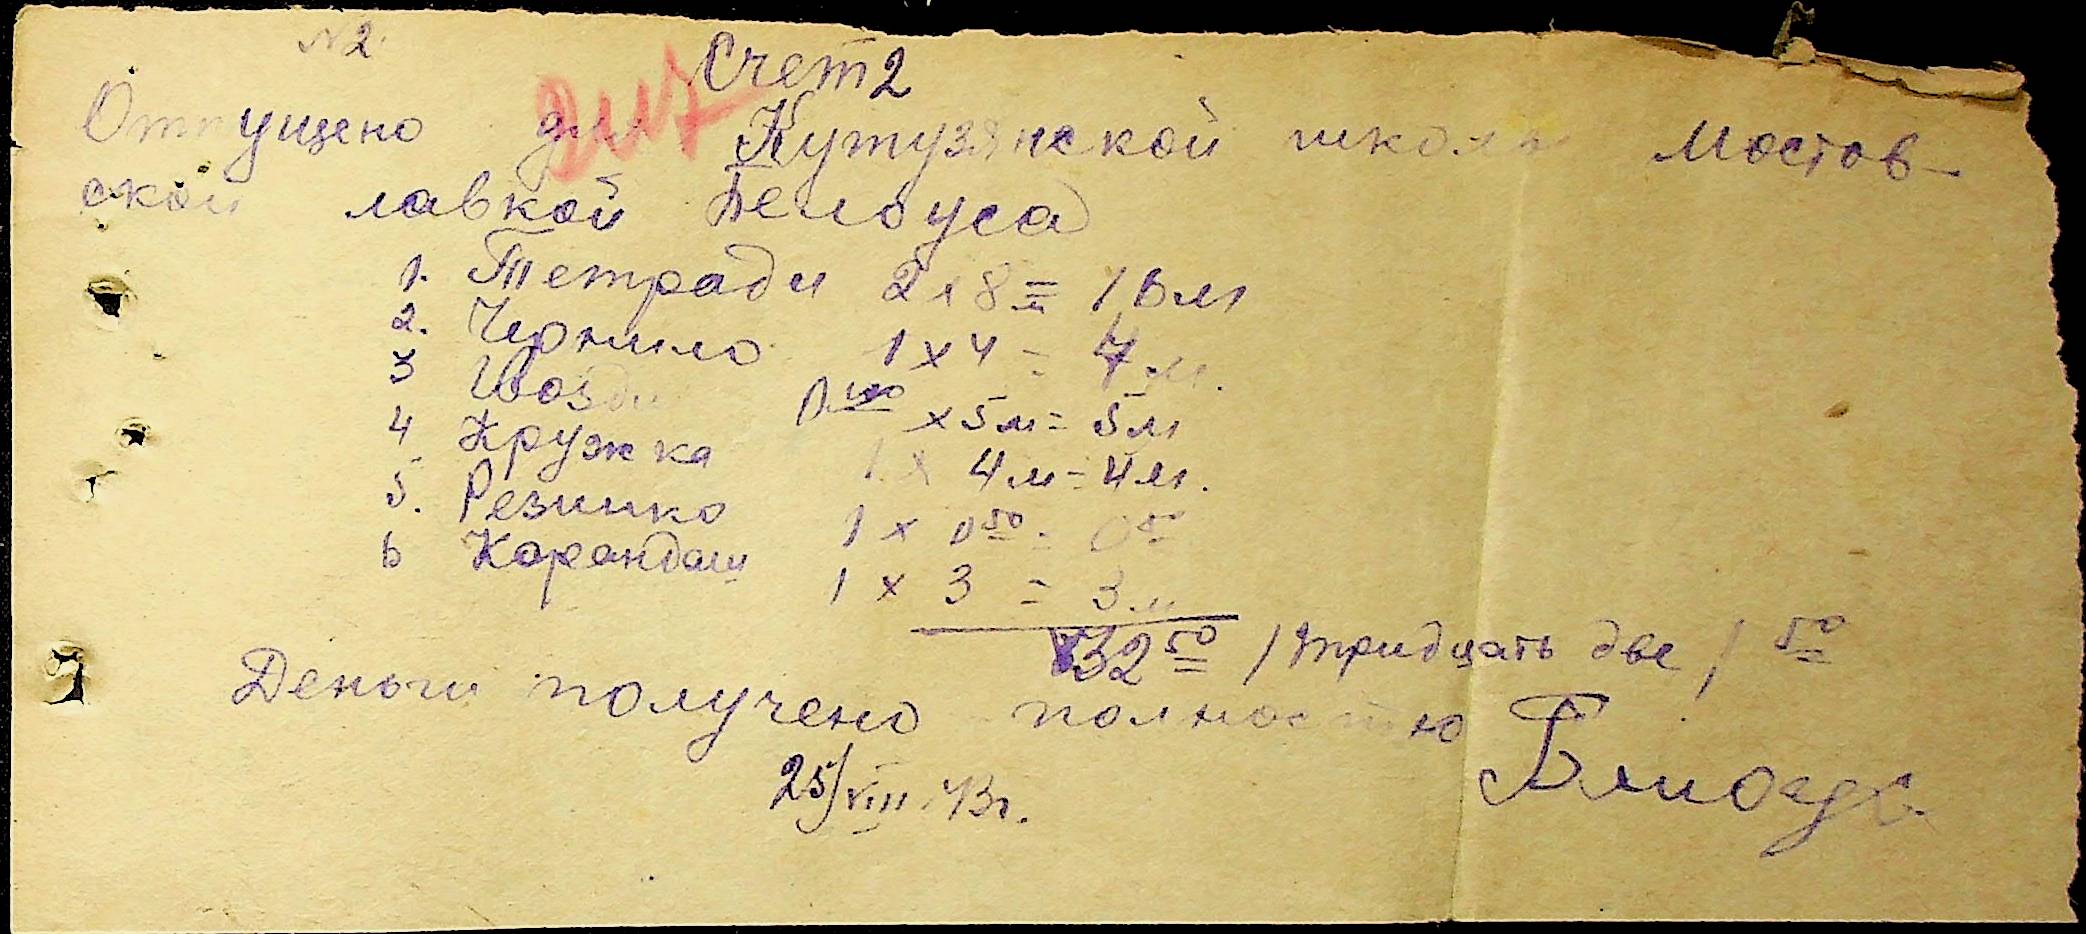 №2
Счет 2
Отпущено для Кутузянской школы Мостов-
ской лавкой Белоуса
1. Тетради 2 х 8 = 16 м
2. Чернило 1 х 4 = 4 м.
3 Гвозди 0.100 х 5 м = 5 м
4 Кружка 1 х 4 м = 4 м.
5. Резинка 1 х 0 50 = 0 50
6 Карандаш 1 х 3 = 3 м
32 50 / тридцать две / 50
Деньги получено полностью
25/VIII 43 г.